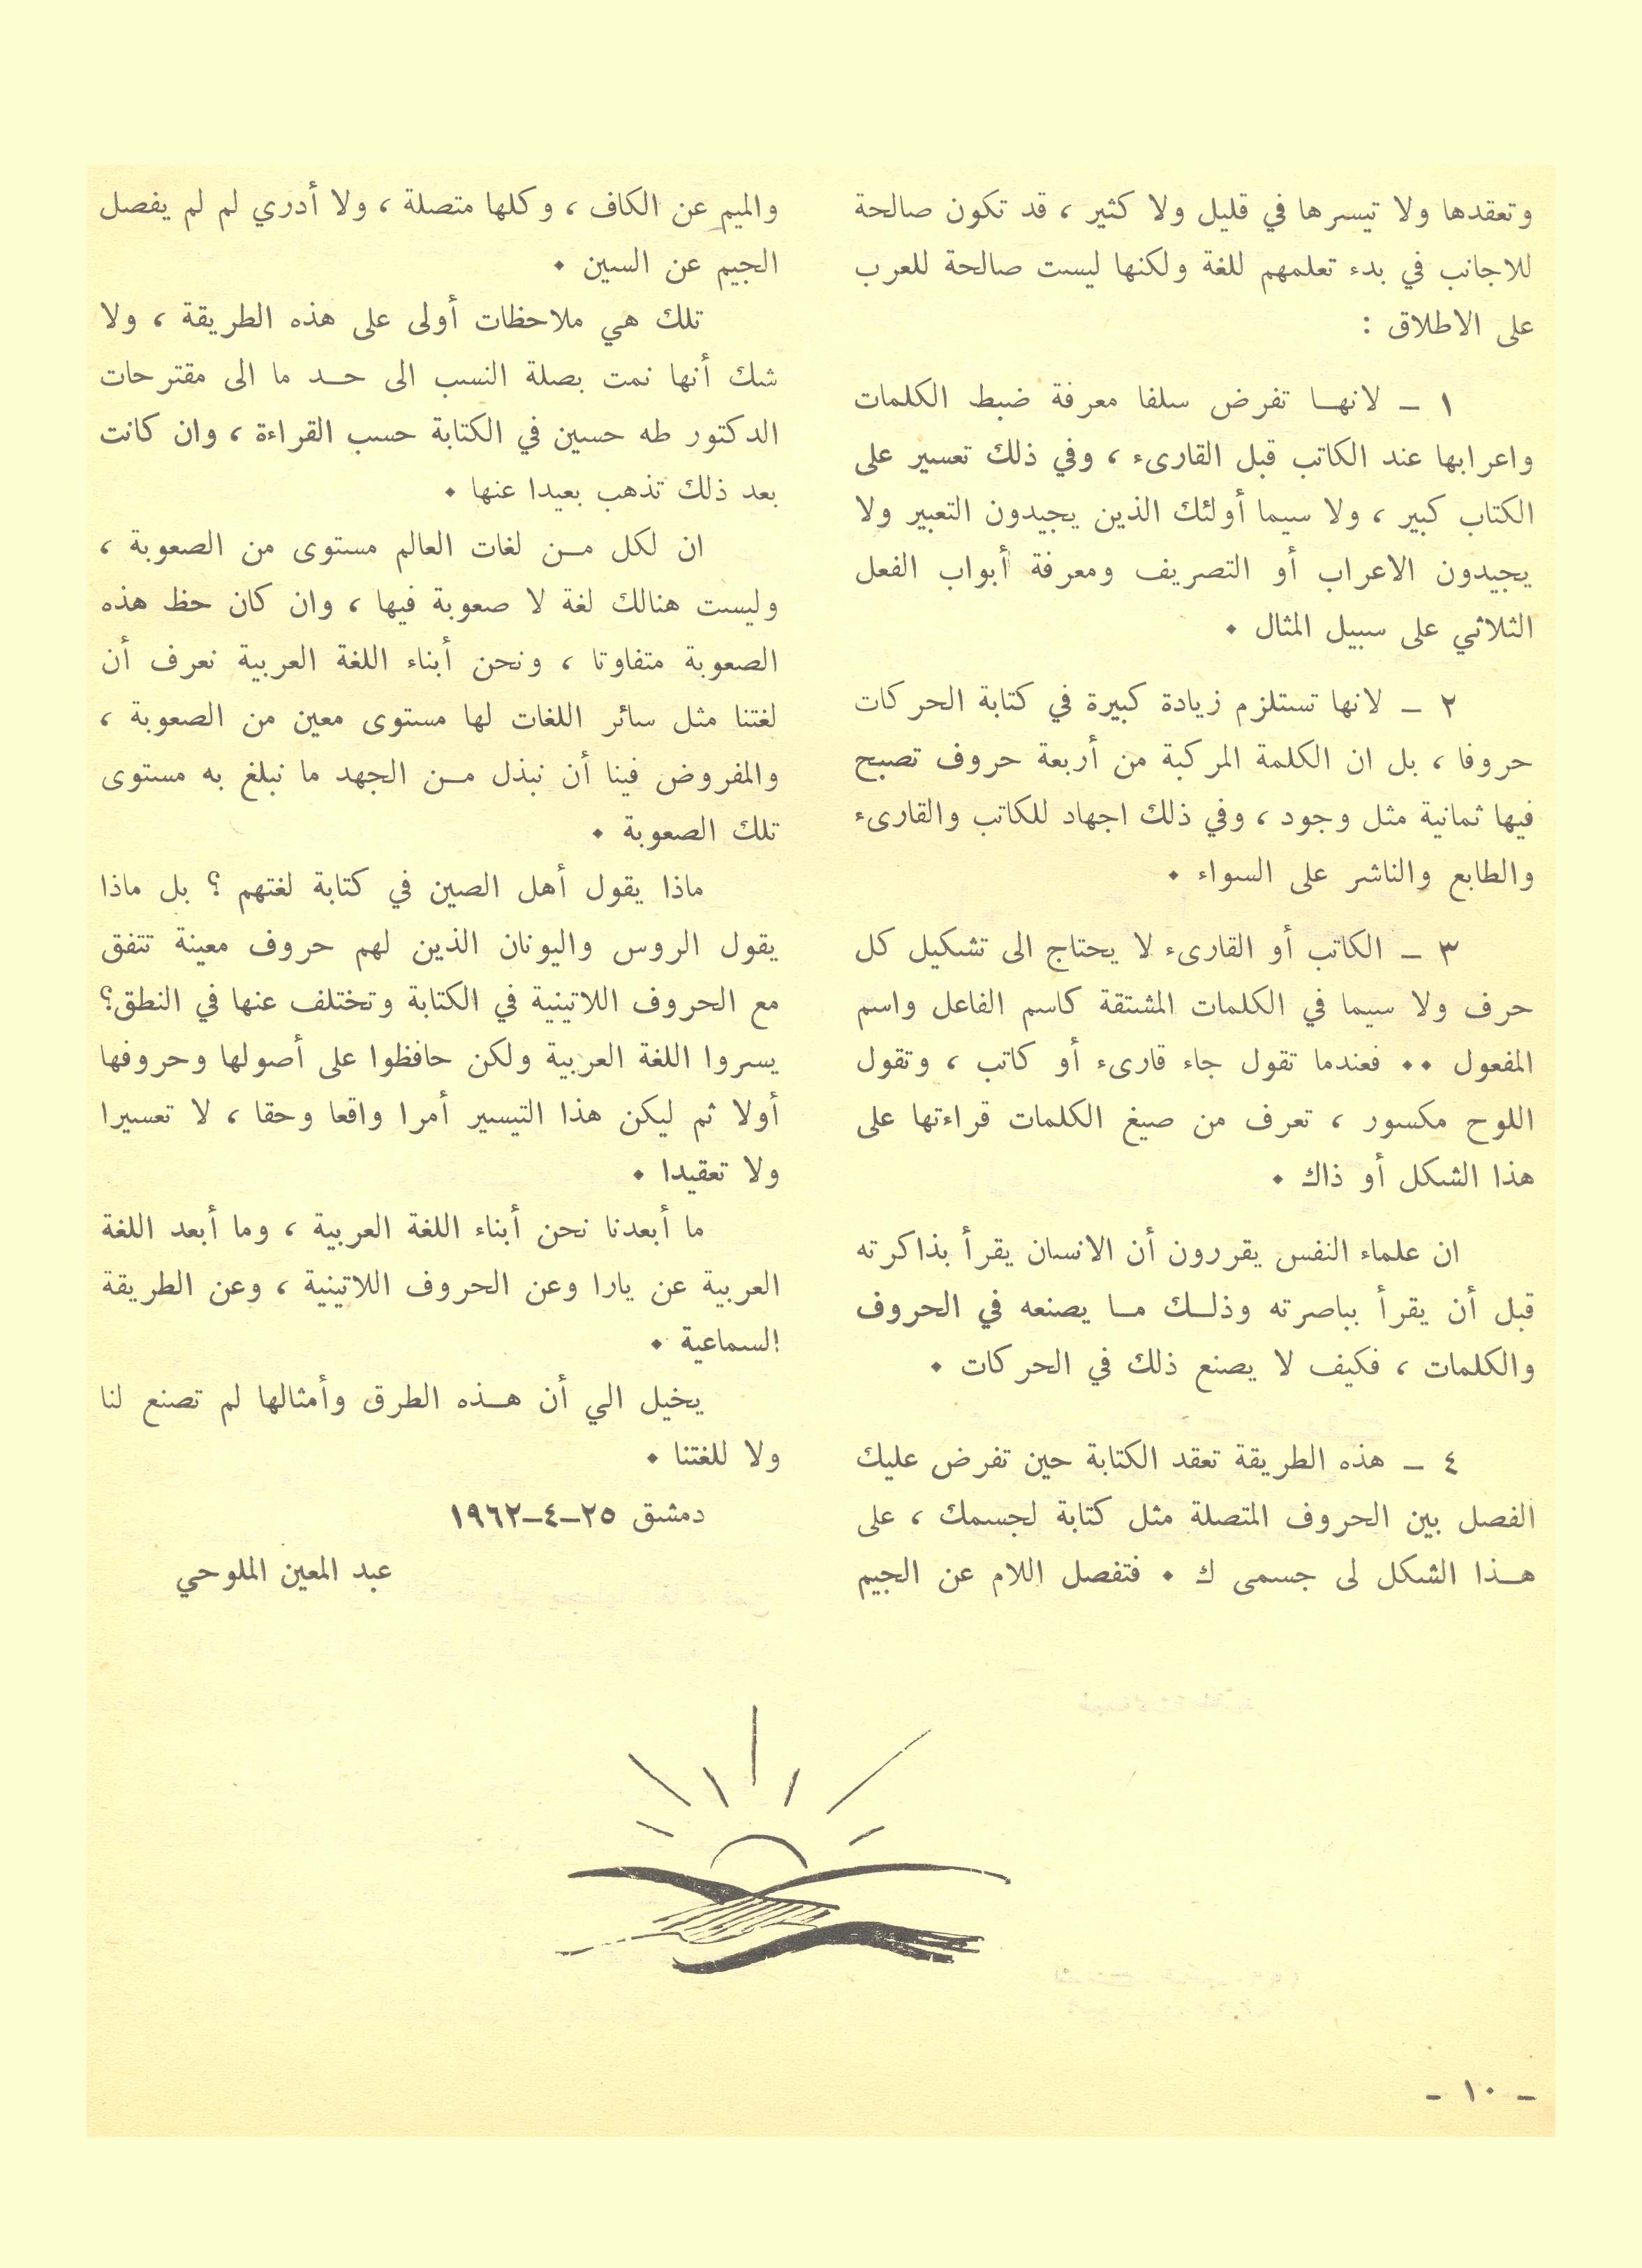 وتعقدها ولا تيسرها في قليل ولا كثير ، قد تكون صالحة
للاجانب في بدء تعلمهم للغة ولكنها ليست صالحة للعرب
على الاطلاق :
١ ــ لانهــا تفرض سلفا معرفة ضبط الكلمات
واعرابها عند الكاتب قبل القارىء ، وفي ذلك تعسير على
الكتاب كبير ، ولا سيما أولئك الذين يجيدون التعبير ولا
يجيدون الاعراب أو التصريف ومعرفة أبواب الفعل
الثلاثي على سبيل المثال ٠
٢ ــ لانها تستلزم زيادة كبيرة في كتابة الحركات
حروفا ، بل ان الكلمة المركبة من أربعة حروف تصبح
فيها ثمانية مثل وجود ، وفي ذلك اجهاد للكاتب والقارىء
والطابع والناشر على السواء ٠
٣ ــ الكاتب أو القارىء لا يحتاج الى تشكيل كل
حرف ولا سيما في الكلمات المشتقة كاسم الفاعل واسم
المفعول ٠٠ فعندما تقول جاء قارىء أو كاتب ، وتقول
اللوح مكسور ، تعرف من صيغ الكلمات قراءتها على
هذا الشكل أو ذاك ٠
ان علماء النفس يقررون أن الانسان يقرأ بذاكرته
قبل أن يقرأ بباصرته وذلــك مــا يصنعه في الحروف
والكلمات ، فكيف لا يصنع ذلك في الحركات ٠
٤ ــ هذه الطريقة تعقد الكتابة حين تفرض عليك
الفصل بين الحروف المتصلة مثل كتابة لجسمك ، على
هــذا الشكل لى جسمى ك ٠ فتفصل اللام عن الجيم
والميم عن الكاف ، وكلها متصلة ، ولا أدري لم لم يفصل
الجيم عن السين ٠
تلك هي ملاحظات أولى على هذه الطريقة ، ولا
شك أنها نمت بصلة النسب الى حــد ما الى مقترحات
الدكتور طه حسين في الكتابة حسب القراءة ، وان كانت
بعد ذلك تذهب بعيدا عنها ٠
ان لكل مــن لغات العالم مستوى من الصعوبة ،
وليست هنالك لغة لا صعوبة فيها ، وان كان حظ هذه
الصعوبة متفاوتا ، ونحن أبناء اللغة العربية نعرف أن
لغتنا مثل سائر اللغات لها مستوى معين من الصعوبة ،
والمفروض فينا أن نبذل مــن الجهد ما نبلغ به مستوى
تلك الصعوبة ٠
ماذا يقول أهل الصين في كتابة لغتهم ؟ بل ماذا
يقول الروس واليونان الذين لهم حروف معينة تتفق
مع الحروف اللاتينية في الكتابة وتختلف عنها في النطق؟
يسروا اللغة العربية ولكن حافظوا على أصولها وحروفها
أولا ثم ليكن هذا التيسير أمرا واقعا وحقا ، لا تعسيرا
ولا تعقيدا ٠
ما أبعدنا نحن أبناء اللغة العربية ، وما أبعد اللغة
العربية عن يارا وعن الحروف اللاتينية ، وعن الطريقة
السماعية ٠
يخيل الي أن هــذه الطرق وأمثالها لم تصنع لنا
ولا للغتنا ٠
دمشق ٢٥ــ٤ــ١٩٦٢
عبد المعين الملوحي
ــ ١٠ ــ